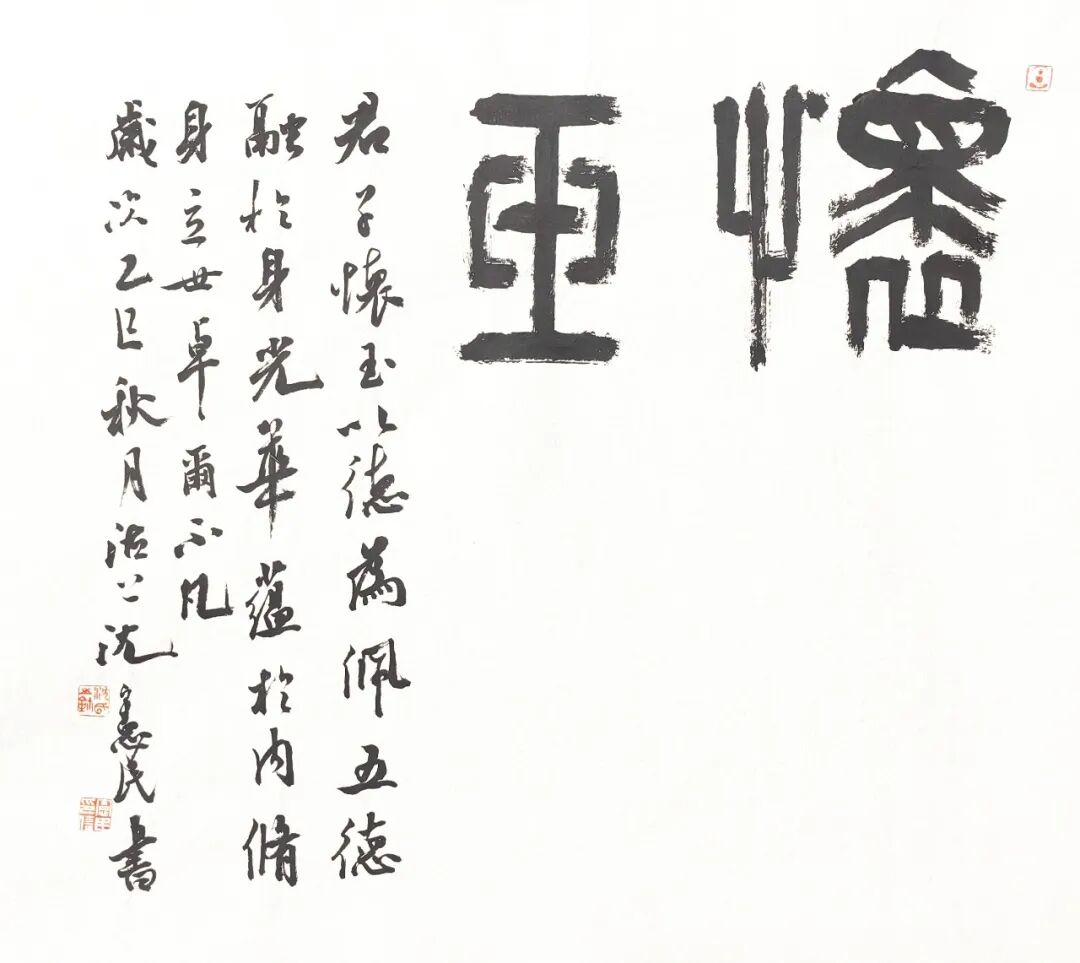 懷玉
君子懷玉以德為佩五德
融於身光華蘊於內脩
身立世卓爾不凡
歲次乙巳秋月沽上沈憲民書